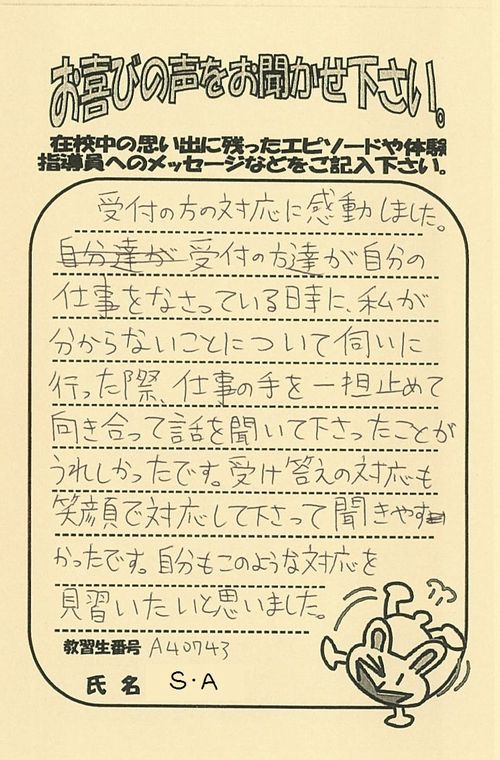 お喜びの声をお聞かせ下さい。
在校中の思い出に残ったエピソードや体験
指導員へのメッセージなどをご記入下さい。
受付の方の対応に感動しました。
自分達が 受付の方達が自分の
仕事をなさっている時に、私が
分からないことについて伺いに
行った際、仕事の手を一担止めて
向き合って話を聞いて下さったことが
うれしかったです。受け答えの対応も
笑顔で対応して下さって聞きやす
かったです。自分もこのような対応を
見習いたいと思いました。
教習生番号 A40743
氏名 S・A